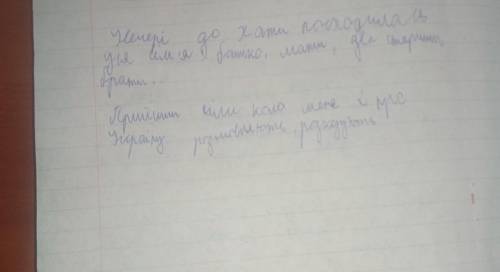 Ввечері до хати посходилась
уся сім'я: батько, мати, два старших
брати...
Прийшли сіли кола мене й про
Україну розмовляють, розказують